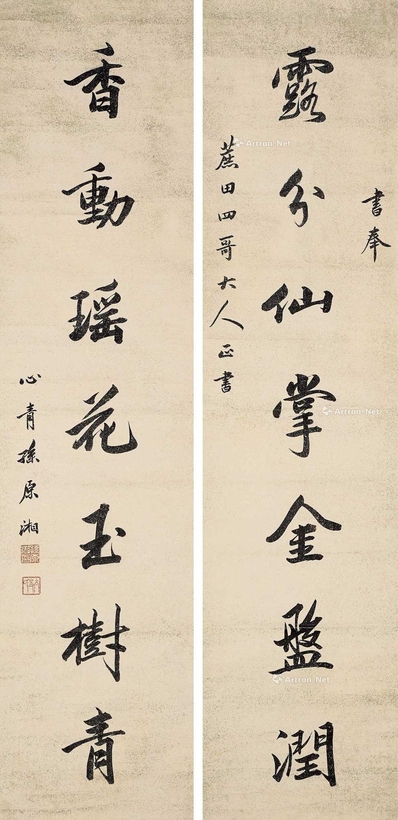 書奉
露分仙掌金盤潤
蔗田四哥大人正書
香動瑤花玉樹青
心青孫原湘
Artron.Net
Artron.Net
Artron.Net